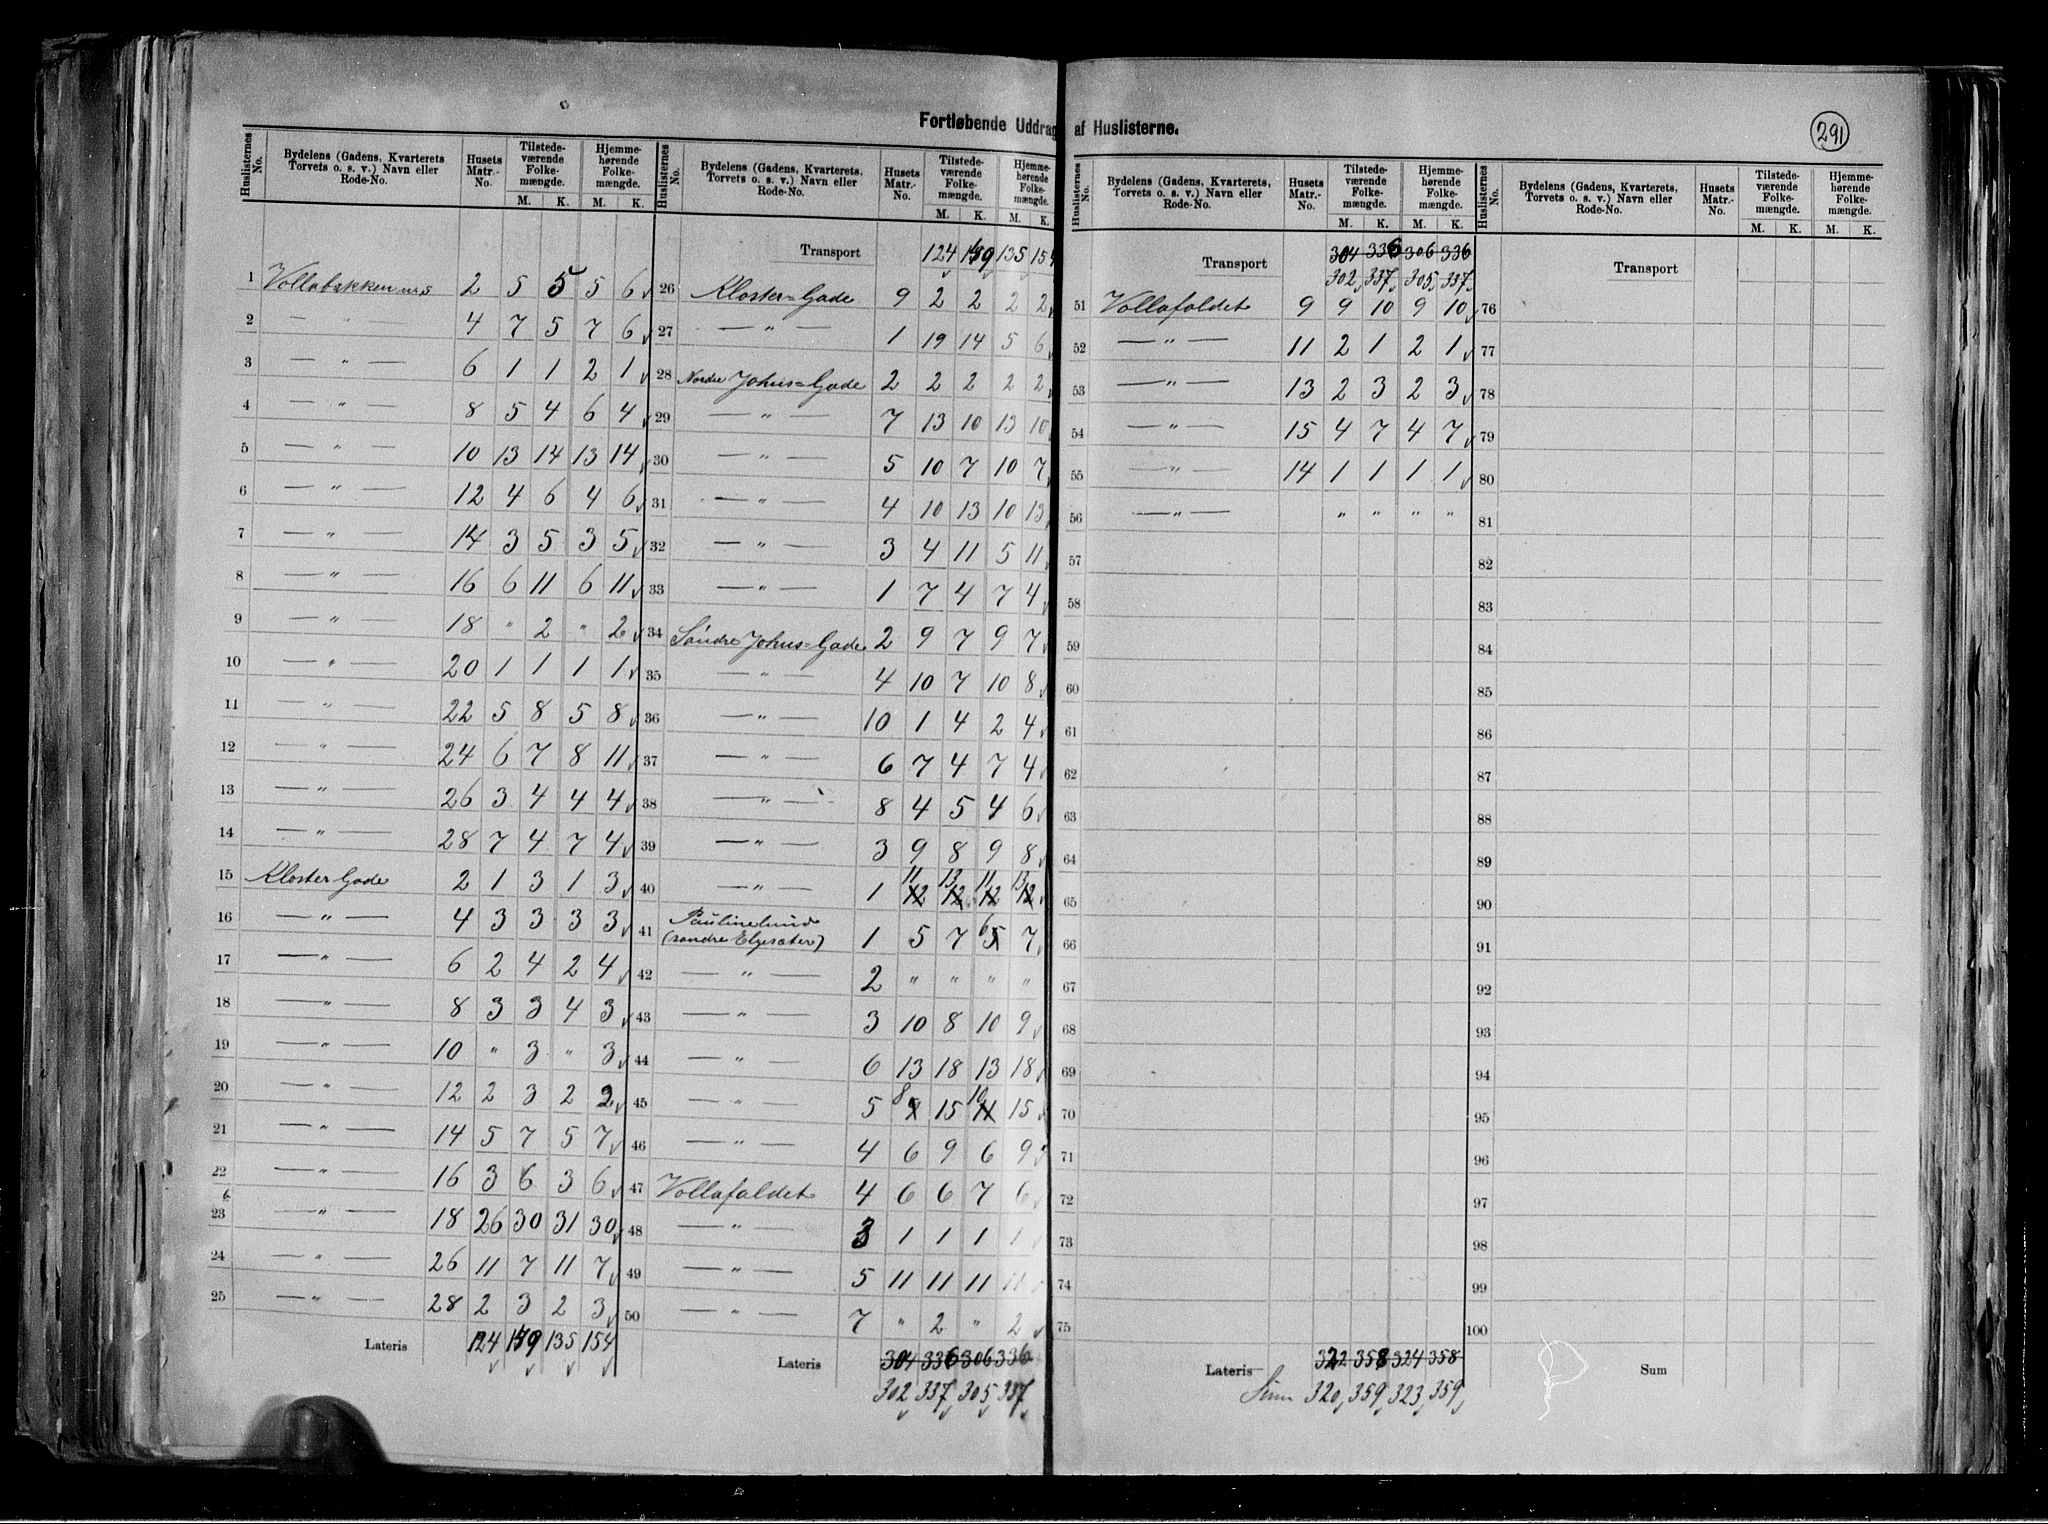 Fortløbende Uddrag af Huslisterne.
291
Huslisternes No. | Bydelens (Gadens, Kvarterets Torvets o. s. v.) Navn eller Rode-No. | Husets Matr.-No. | Tilstedeværende Folkemængde. M. K. | Hjemmehørende Folkemængde. M. K.
1 Vollabakken 2 5 5 5 6
2 — " — 4 7 5 7 6
3 — " — 6 1 1 2 1
4 — " — 8 5 4 6 4
5 — " 10 13 14 13 14
6 — " — 12 4 6 4 6
7 — " — 14 3 5 3 5
8 — " — 16 6 11 6 11
9 — " — 18 " 2 " 2
10 — " — 20 1 1 1 1
11 — " — 22 5 8 5 8
12 — " — 24 6 7 8 11
13 — " — 26 3 4 4 4
14 — " — 28 7 4 7 4
15 Kloster Gade 2 1 3 1 3
16 — " — 4 3 3 3 3
17 — " — 6 2 4 2 4
18 — " — 8 3 3 4 3
19 — " — 10 " 3 " 3
20 — " — 12 2 3 2 2
21 — " — 14 5 7 5 7
22 — " — 16 3 6 3 6
23 — " — 18 26 30 31 30
24 — " — 26 11 7 11 7
25 — " — 28 2 3 2 3
Lateris 124 159 135 154
Huslisternes No. | Bydelens (Gadens, Kvarterets, Torvets o. s. v.) Navn eller Rode-No. | Husets Matr.-No. | Tilstedeværende Folkemængde. M. K. | Hjemmehørende Folkemængde. M. K.
Transport 124 159 135 154
26 Kloster=Gade 9 2 2 2 2
27 — " — 1 19 14 5 6
28 Nordre Johns=Gade 2 2 2 2 2
29 — " — 7 13 10 13 10
30 — " — 5 10 7 10 7
31 — " — 4 10 13 10 13
32 — " — 3 4 11 5 11
33 — " — 1 7 4 7 4
34 Søndre Johns=Gade 2 9 7 9 7
35 — " — 4 10 7 10 8
36 — " — 10 1 4 2 4
37 — " — 6 7 4 7 4
38 — " — 8 4 5 4 6
39 — " — 3 9 8 9 8
11 13 11 13
40 — " — 1 12 12 12 12
41 Paulinelund
(søndre Elgesæter) 1 5 7 6 5 7
42 — " — 2 " " " "
43 — " — 3 10 8 10 9
44 — " — 6 13 18 13 18
45 — " — 5 8 9 15 10 11 15
46 — " — 4 6 9 6 9
47 Vollafaldet 4 6 6 7 6
48 — " — 3 1 1 1 1
49 — " — 5 11 11 11 11
50 — " — 7 " 2 " 2
Lateris 304 336 306 336
302 337 305 337
Huslisternes No. | Bydelens (Gadens, Kvarterets, Torvets o. s. v.) Navn eller Rode-No. | Husets Matr.-No. | Tilstedeværende Folkemængde. M. K. | Hjemmehørende Folkemængde. M. K.
304 336 306 336
Transport 302 337 305 337
51 Vollafaldet 9 9 10 9 10
52 — " — 11 2 1 2 1
53 — " — 13 2 3 2 3
54 — " — 15 4 7 4 7
55 — " — 14 1 1 1 1
56 — " — " " " "
57
58
59
60
61
62
63
64
65
66
67
68
69
70
71
72
73
74
75
Lateris 322 358 324 358
Sum 320 359 323 359
Huslisternes No. | Bydelens (Gadens, Kvarterets, Torvets o. s. v.) Navn eller Rode-No. | Husets Matr.-No. | Tilstedeværende Folkemængde. M. K. | Hjemmehørende Folkemængde. M. K.
Transport
76
77
78
79
80
81
82
83
84
85
86
87
88
89
90
91
92
93
94
95
96
97
98
99
100
Sum